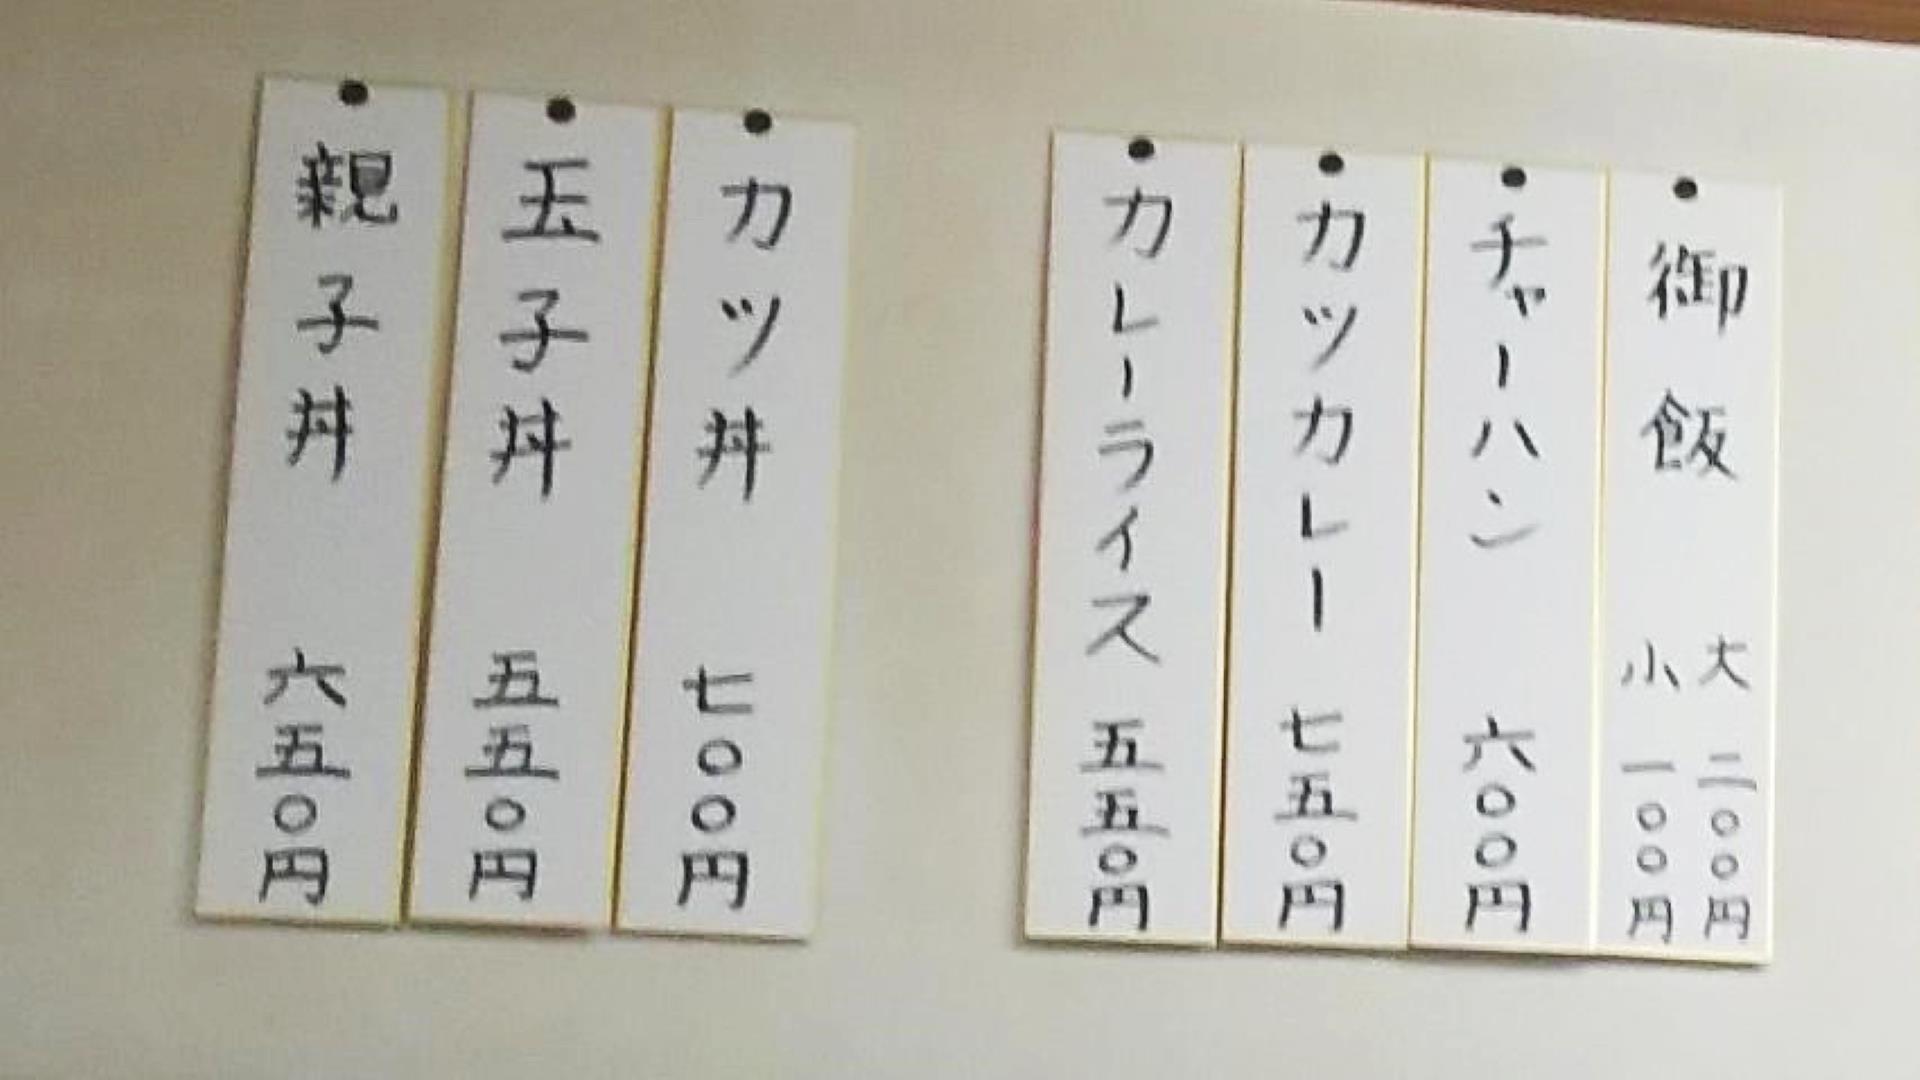 御飯 大二〇〇円
小一〇〇円
チャーハン 六〇〇円
カツカレー 七五〇円
カレーライス 五五〇円
カツ丼 七〇〇円
玉子丼 五五〇円
親子丼 六五〇円